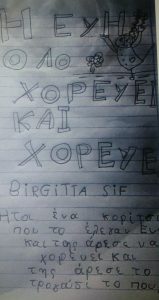 Η ΕΥΗ
ΟΛΟ
ΧΟΡΕΥΕΙ
ΚΑΙ
ΧΟΡΕΥΕ
BIRGITTA SIF
Ηταν ένα κορίτσι
που το έλεγαν Ευ
και της άρεσε να
χορεύει και
της άρεσε το
τραγούδι το που